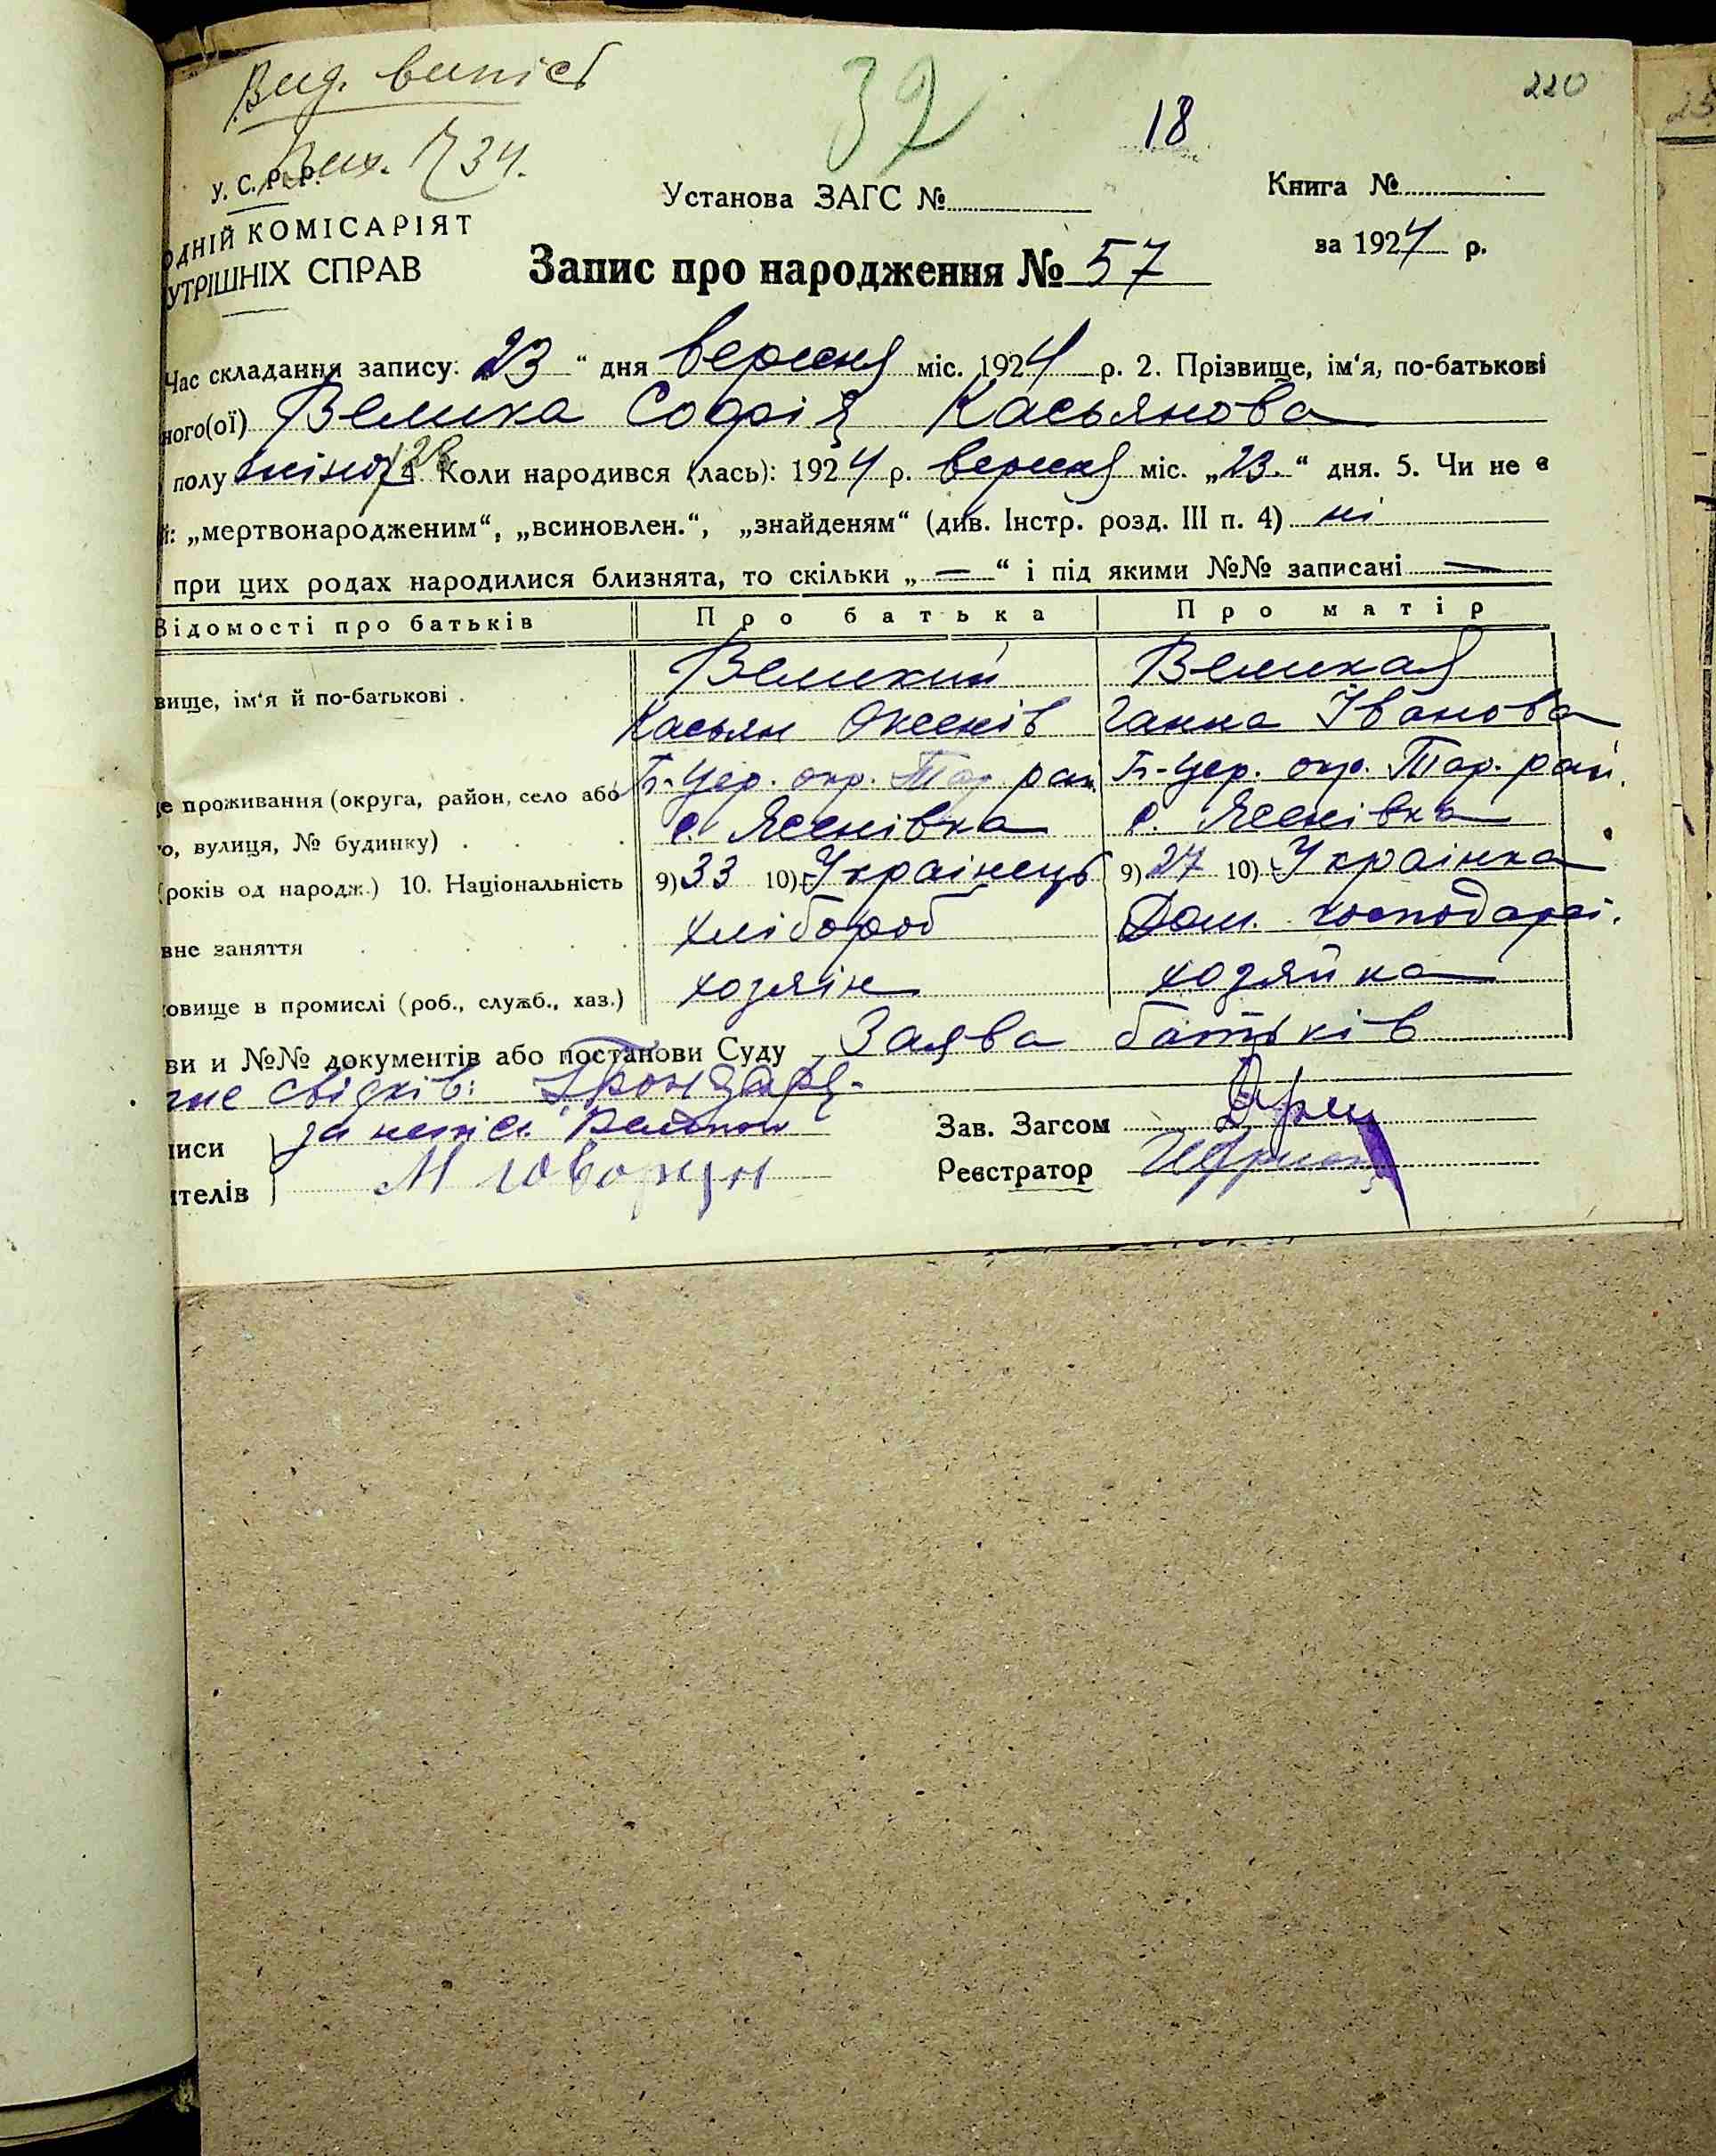 Вид. випісь
32
18
220
Вих. 734.
У. С. Р. Р.
Установа ЗАГС №
Книга №
ОДНІЙ КОМІСАРІЯТ
за 1924 р.
УТРІШНІХ СПРАВ
Запис про народження № 57
Час складання запису: „23“ дня вересня міс. 1924 р. 2. Прізвище, ім‘я, по-батькові
ного(ої) Велика Софія Касьянова
полу жіноч. 4. Коли народився (лась): 1924 р. вересня міс. „23.“ дня. 5. Чи не є
й: „мертвонародженим“, „всиновлен.“, „знайденям“ (див. Інстр. розд. III п. 4) ні
при цих родах народилися близнята, то скільки „—“ і під якими №№ записані —
Відомості про батьків Про батька Про матір
Великий Великая
вище, ім‘я й по-батькові .
Касьян Оксенів Ганна Іванова
Б-Цер. окр. Тар. рай. Б-Цер. окр. Тар. рай.
це проживання (округа, район, село або
с. Ясенівка с. Ясенівка
о, вулиця, № будинку) . . . .
(років од народж.) 10. Національність 9) 33 10) Українець 9) 27 10) Українка
вне заняття . . . . . хлібороб Дом. господарсі.
овище в промислі (роб., служб., хаз.) хозяїн хозяйка
ви и №№ документів або постанови Суду Заява батьків
свідків:
писи
Зав. Загсом
ителів
Реєстратор